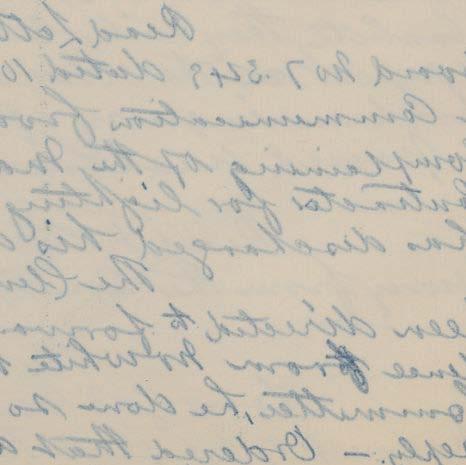 Read Lett
oard No 7.348 dated 10
Communication from
omplaining of the
ontracts for lighting
has discharged his
The Cler
een directed to forwar
from Mr White to
ommittee, he done so
reply. — Ordered that